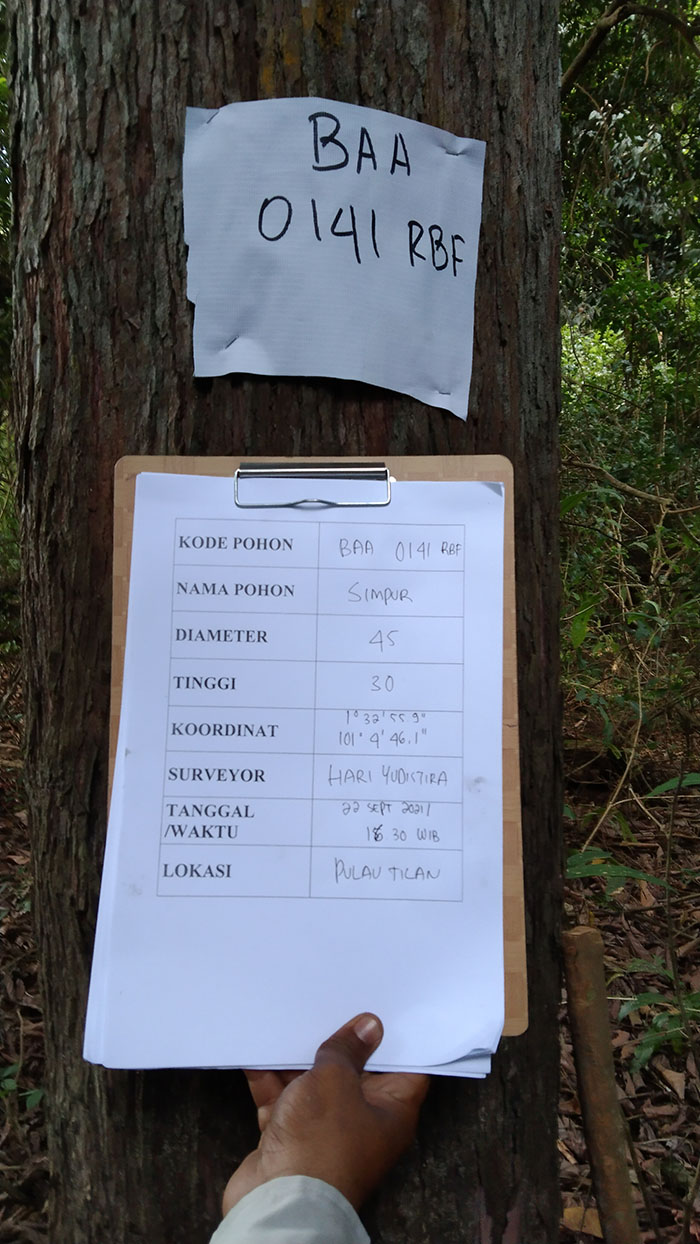 BAA
0141 RBF
KODE POHON BAA 0141 RBF
NAMA POHON SIMPUR
DIAMETER 45
TINGGI 30
KOORDINAT 1° 32' 55.9"
101° 4' 46.1"
SURVEYOR HARI YUDISTIRA
TANGGAL 22 SEPT 2021/
/WAKTU 30 WIB
LOKASI PULAU TILAN